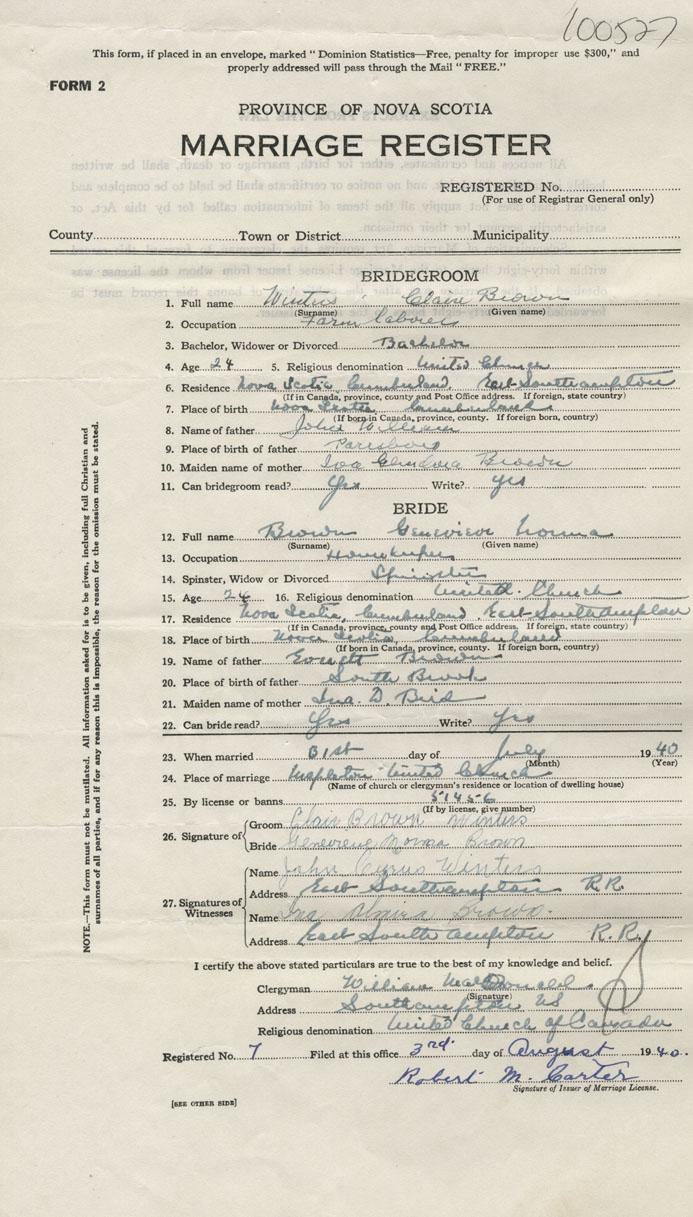 100527
This form, if placed in an envelope, marked "Dominion Statistics—Free, penalty for improper use $300," and
properly addressed will pass through the Mail "FREE."
FORM 2
PROVINCE OF NOVA SCOTIA
MARRIAGE REGISTER
REGISTERED No.
(For use of Registrar General only)
County Town or District Municipality
BRIDEGROOM
1. Full name Winters Clair Brown
(Surname) (Given name)
2. Occupation Farm laborer
3. Bachelor, Widower or Divorced Bachelor
4. Age 24 5. Religious denomination United Church
6. Residence Nova Scotia, Cumberland, East Southampton
(If in Canada, province, county and Post Office address. If foreign, state country)
7. Place of birth Nova Scotia, Cumberland
(If born in Canada, province, county. If foreign born, country)
8. Name of father John William
9. Place of birth of father Parrsboro
10. Maiden name of mother Brown
11. Can bridegroom read? Yes Write? yes
BRIDE
12. Full name Brown Genevieve Norma
(Surname) (Given name)
13. Occupation Housekeeper
14. Spinster, Widow or Divorced Spinster
15. Age 24 16. Religious denomination United Church
17. Residence Nova Scotia, Cumberland, East Southampton
(If in Canada, province, county and Post Office address. If foreign, state country)
18. Place of birth Nova Scotia, Cumberland
(If born in Canada, province, county. If foreign born, country)
19. Name of father Everett Brown
20. Place of birth of father South Brook
21. Maiden name of mother Ina. D. Bird
22. Can bride read? Yes Write? Yes
23. When married 31st day of July 1940
(Month) (Year)
24. Place of marriage Mapleton United Church
(Name of church or clergyman's residence or location of dwelling house)
25. By license or banns 51456
(If by license, give number)
26. Signature of
Groom Clair Brown Winters
Bride Genevieve Norma Brown
27. Signatures of Witnesses
Name John Cyrus Winters
Address East Southampton R.R.
Name Ina Brown.
Address East Southampton R.R.
I certify the above stated particulars are true to the best of my knowledge and belief.
Clergyman William MacDonald
(Signature)
Address Southampton NS
Religious denomination United Church of Canada
Registered No. 7 Filed at this office 3rd. day of August 1940.
Robert M. Carter
Signature of Issuer of Marriage License.
[SEE OTHER SIDE]
NOTE.—This form must not be mutilated. All information asked for is to be given, including full Christian and
surnames of all parties, and if for any reason this is impossible, the reason for the omission must be stated.